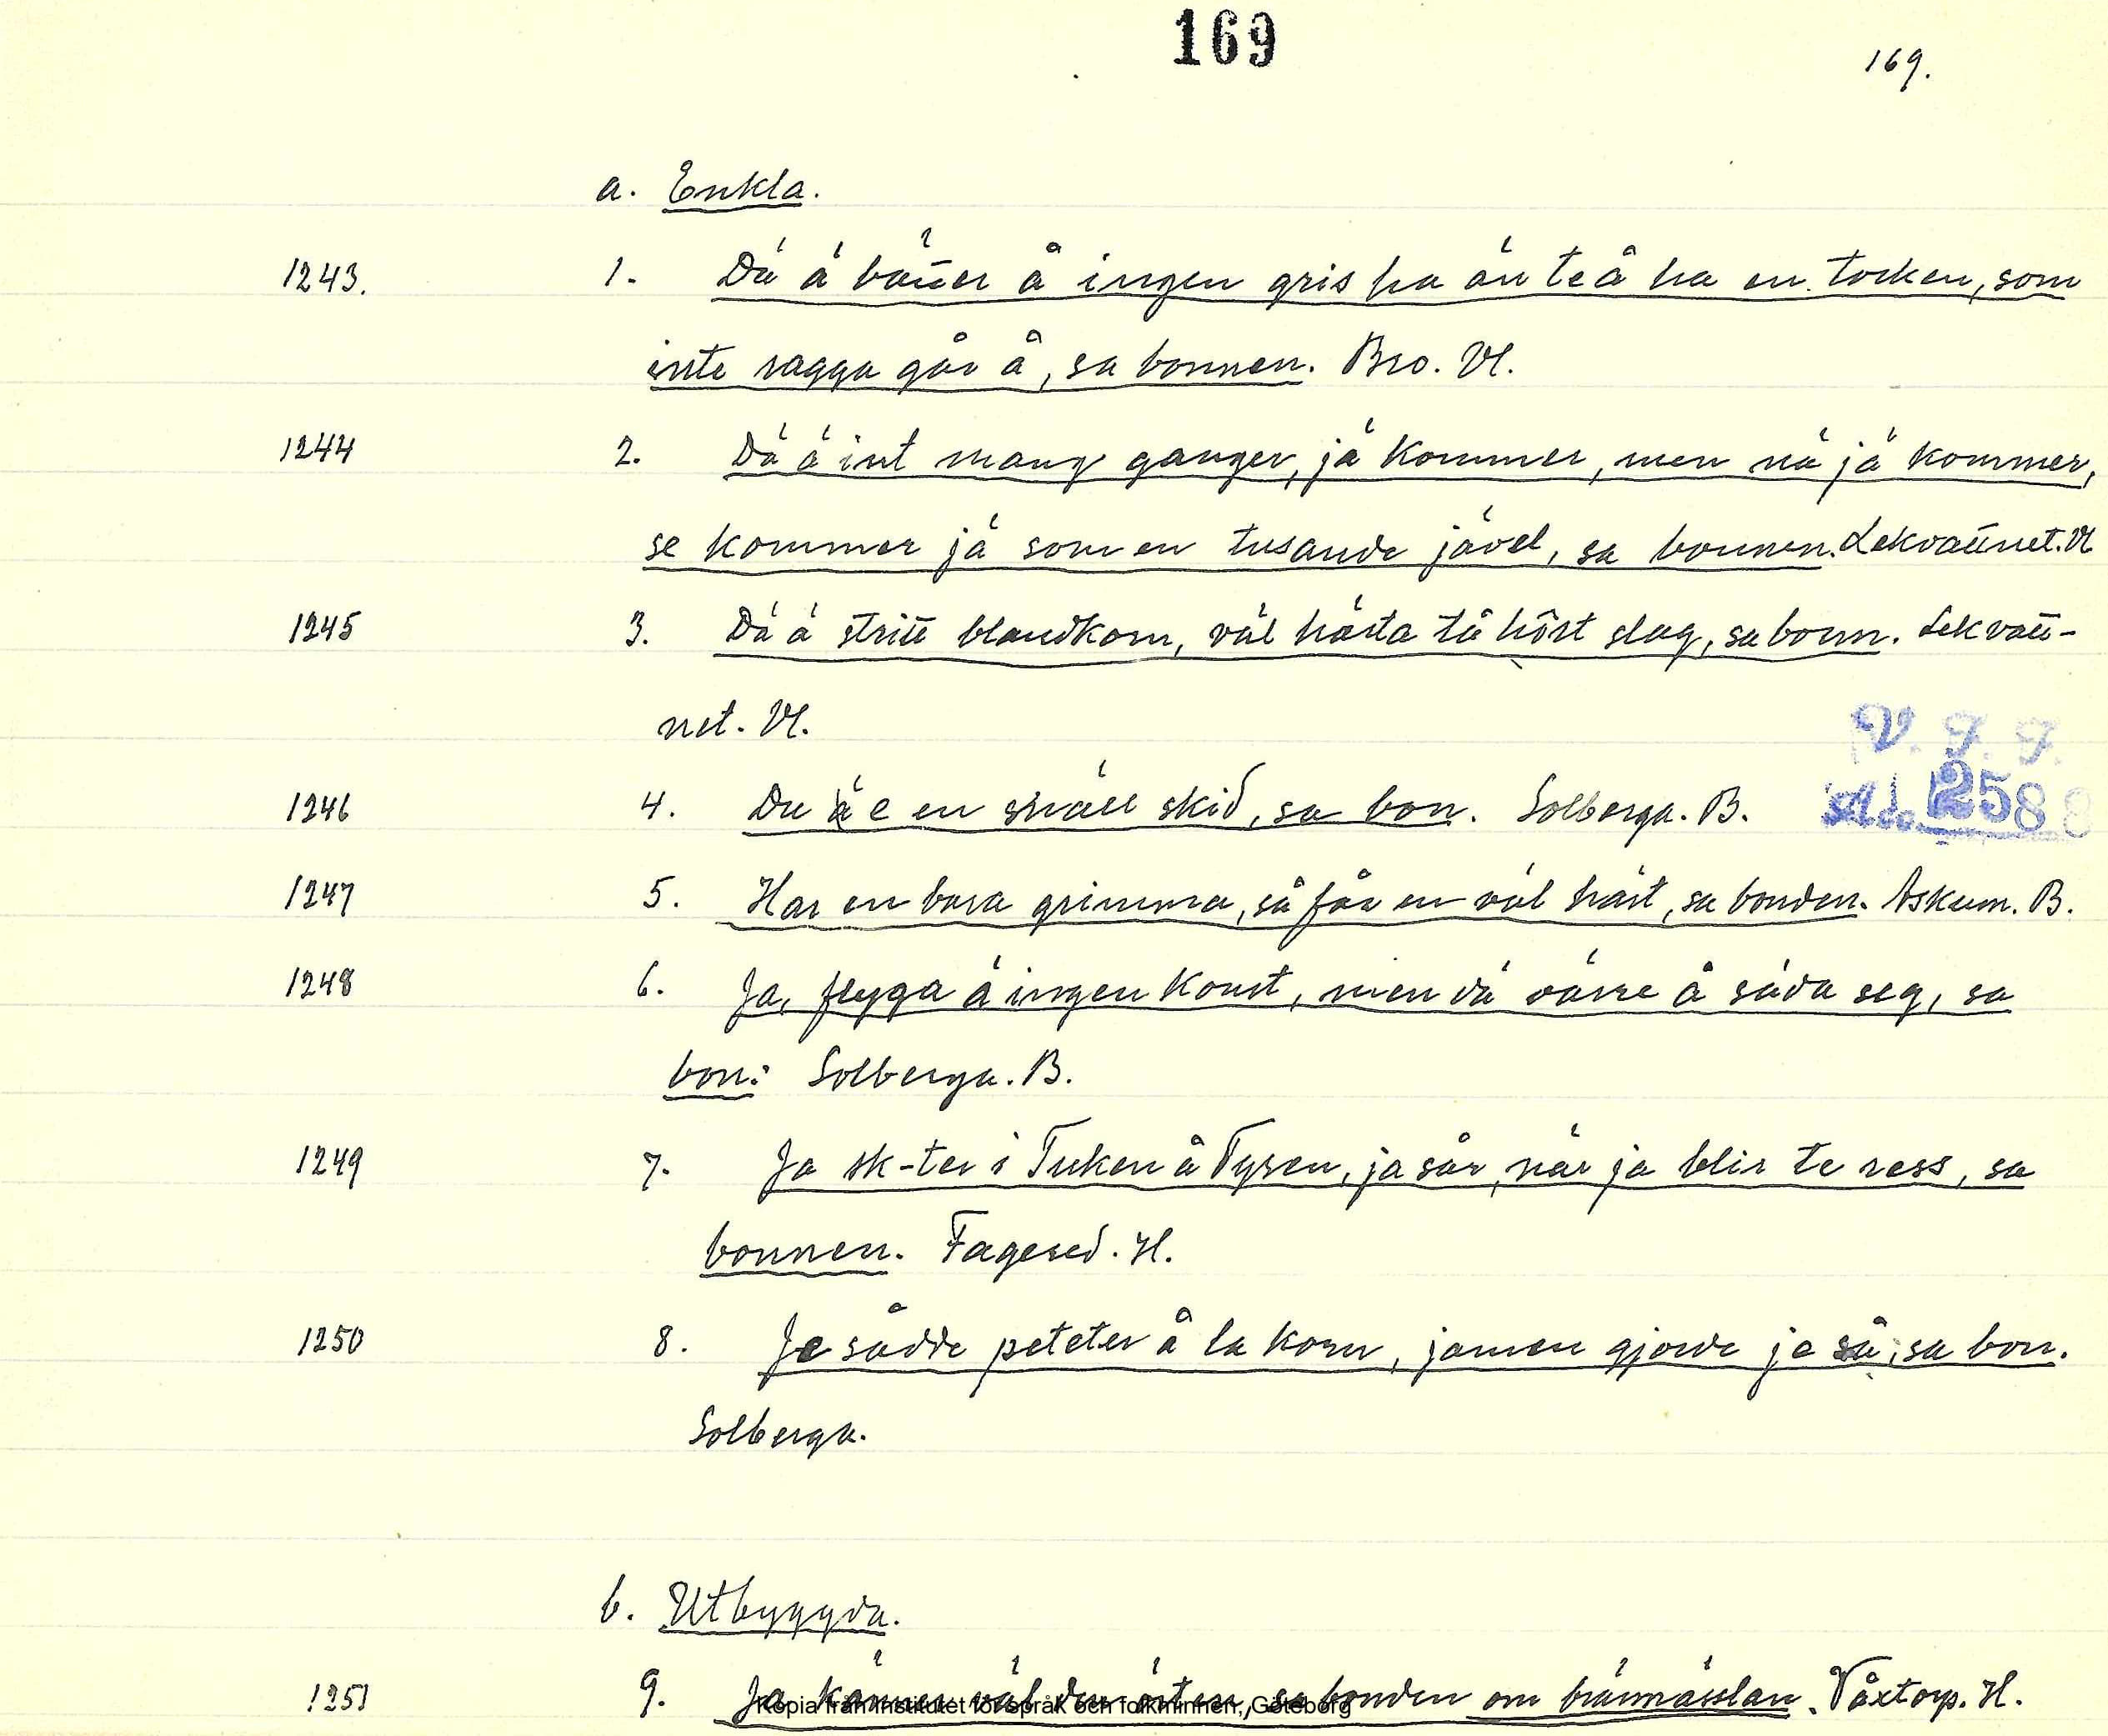 169
169.
a. Enkla.
1243. 1. Dä ä bäner å ingen gris ha än te å ha en tocken, som
inte ragga går å, sa bonnen. Bro. Vl.
1244 2. Dä ä int mang ganger, jä kommer, men nä jä kommer,
se kommer jä som en tusande jävel, sa bonnen. Lekvattnet. Vl
1245 3. Dä ä stritt blandkorn, väl hästa tå hôst slag, sa bonn. Lekvatt-
net. Vl.
V. F. F.
1246 4. Du e en snäll skid, sa bon. Solberga. B.
Acc. 2588
1247 5. Har en bara grimma, så får en väl häst, sa bonden. Askum. B.
1248 6. Ja, flyga ä ingen konst, men dä värre å säda seg, sa
bon. Solberga. B.
1249 7. Ja sk-ter i Tuken å Tysen, ja sår, när ja blir te ress, sa
bonnen. Fagered. H.
1250 8. Je sådde peteter å la korn, jamen gjorde je så, sa bon.
Solberga.
b. Utbyggda.
1251 9. Ja känner väl den örten, sa bonden om brännässlan. Våxtorp. H.
Kopia från Institutet för språk och folkminnen, Göteborg